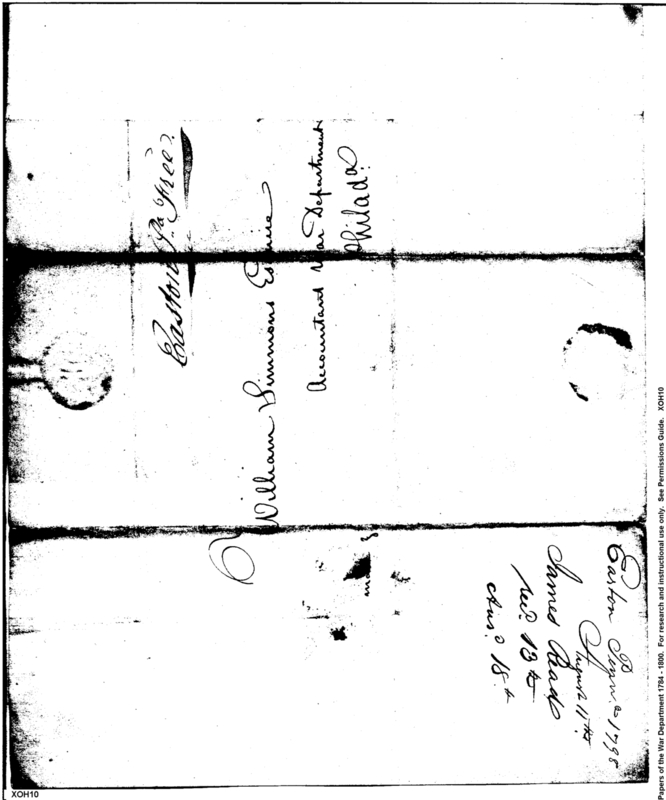 Easton Pa Free
William Simmons Esquire
Accountant War Department
Philada.
Easton Penna 1798
August 11th
James Read
Rec'd 13th
Ans'd 18th
Papers of the War Department 1784 - 1800. For research and instructional use only. See Permissions Guide. XOH10
XOH10